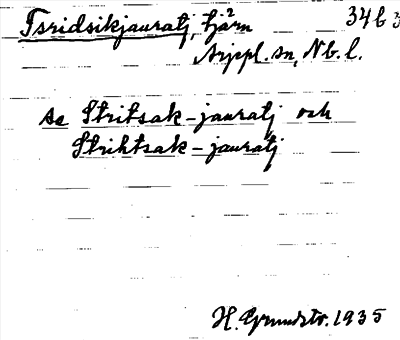 Tsridsikjauratj, tjärn 34b3
Arjepl. sn, Nb. l.
se Stritsak-jauratj och
Strihtsak-jauratj
H. Grundstr. 1935